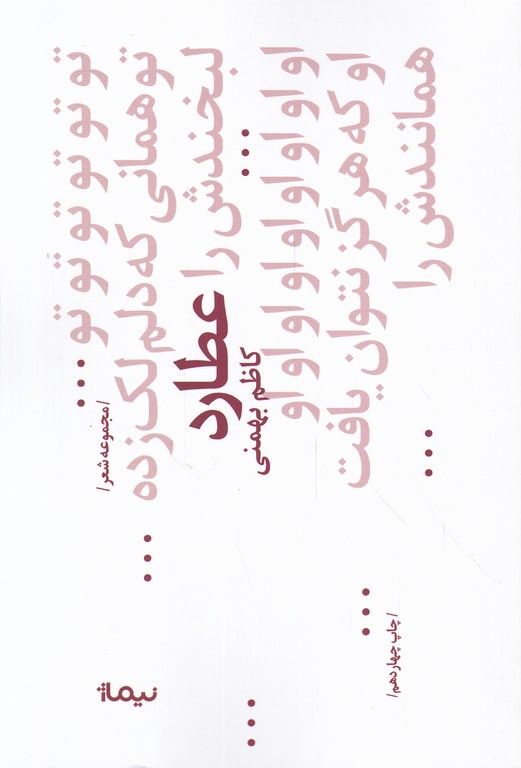 تو تو تو تو تو تو ...
/مجموعه شعر/
تو همانی که دلم لک زده ...
نیماژ
لبخندش را ...
عطارد
کاظم بهمنی
او او او او او او او او ...
او که هرگز نتوان یافت ...
/چاپ چهاردهم/
همانندش را ...